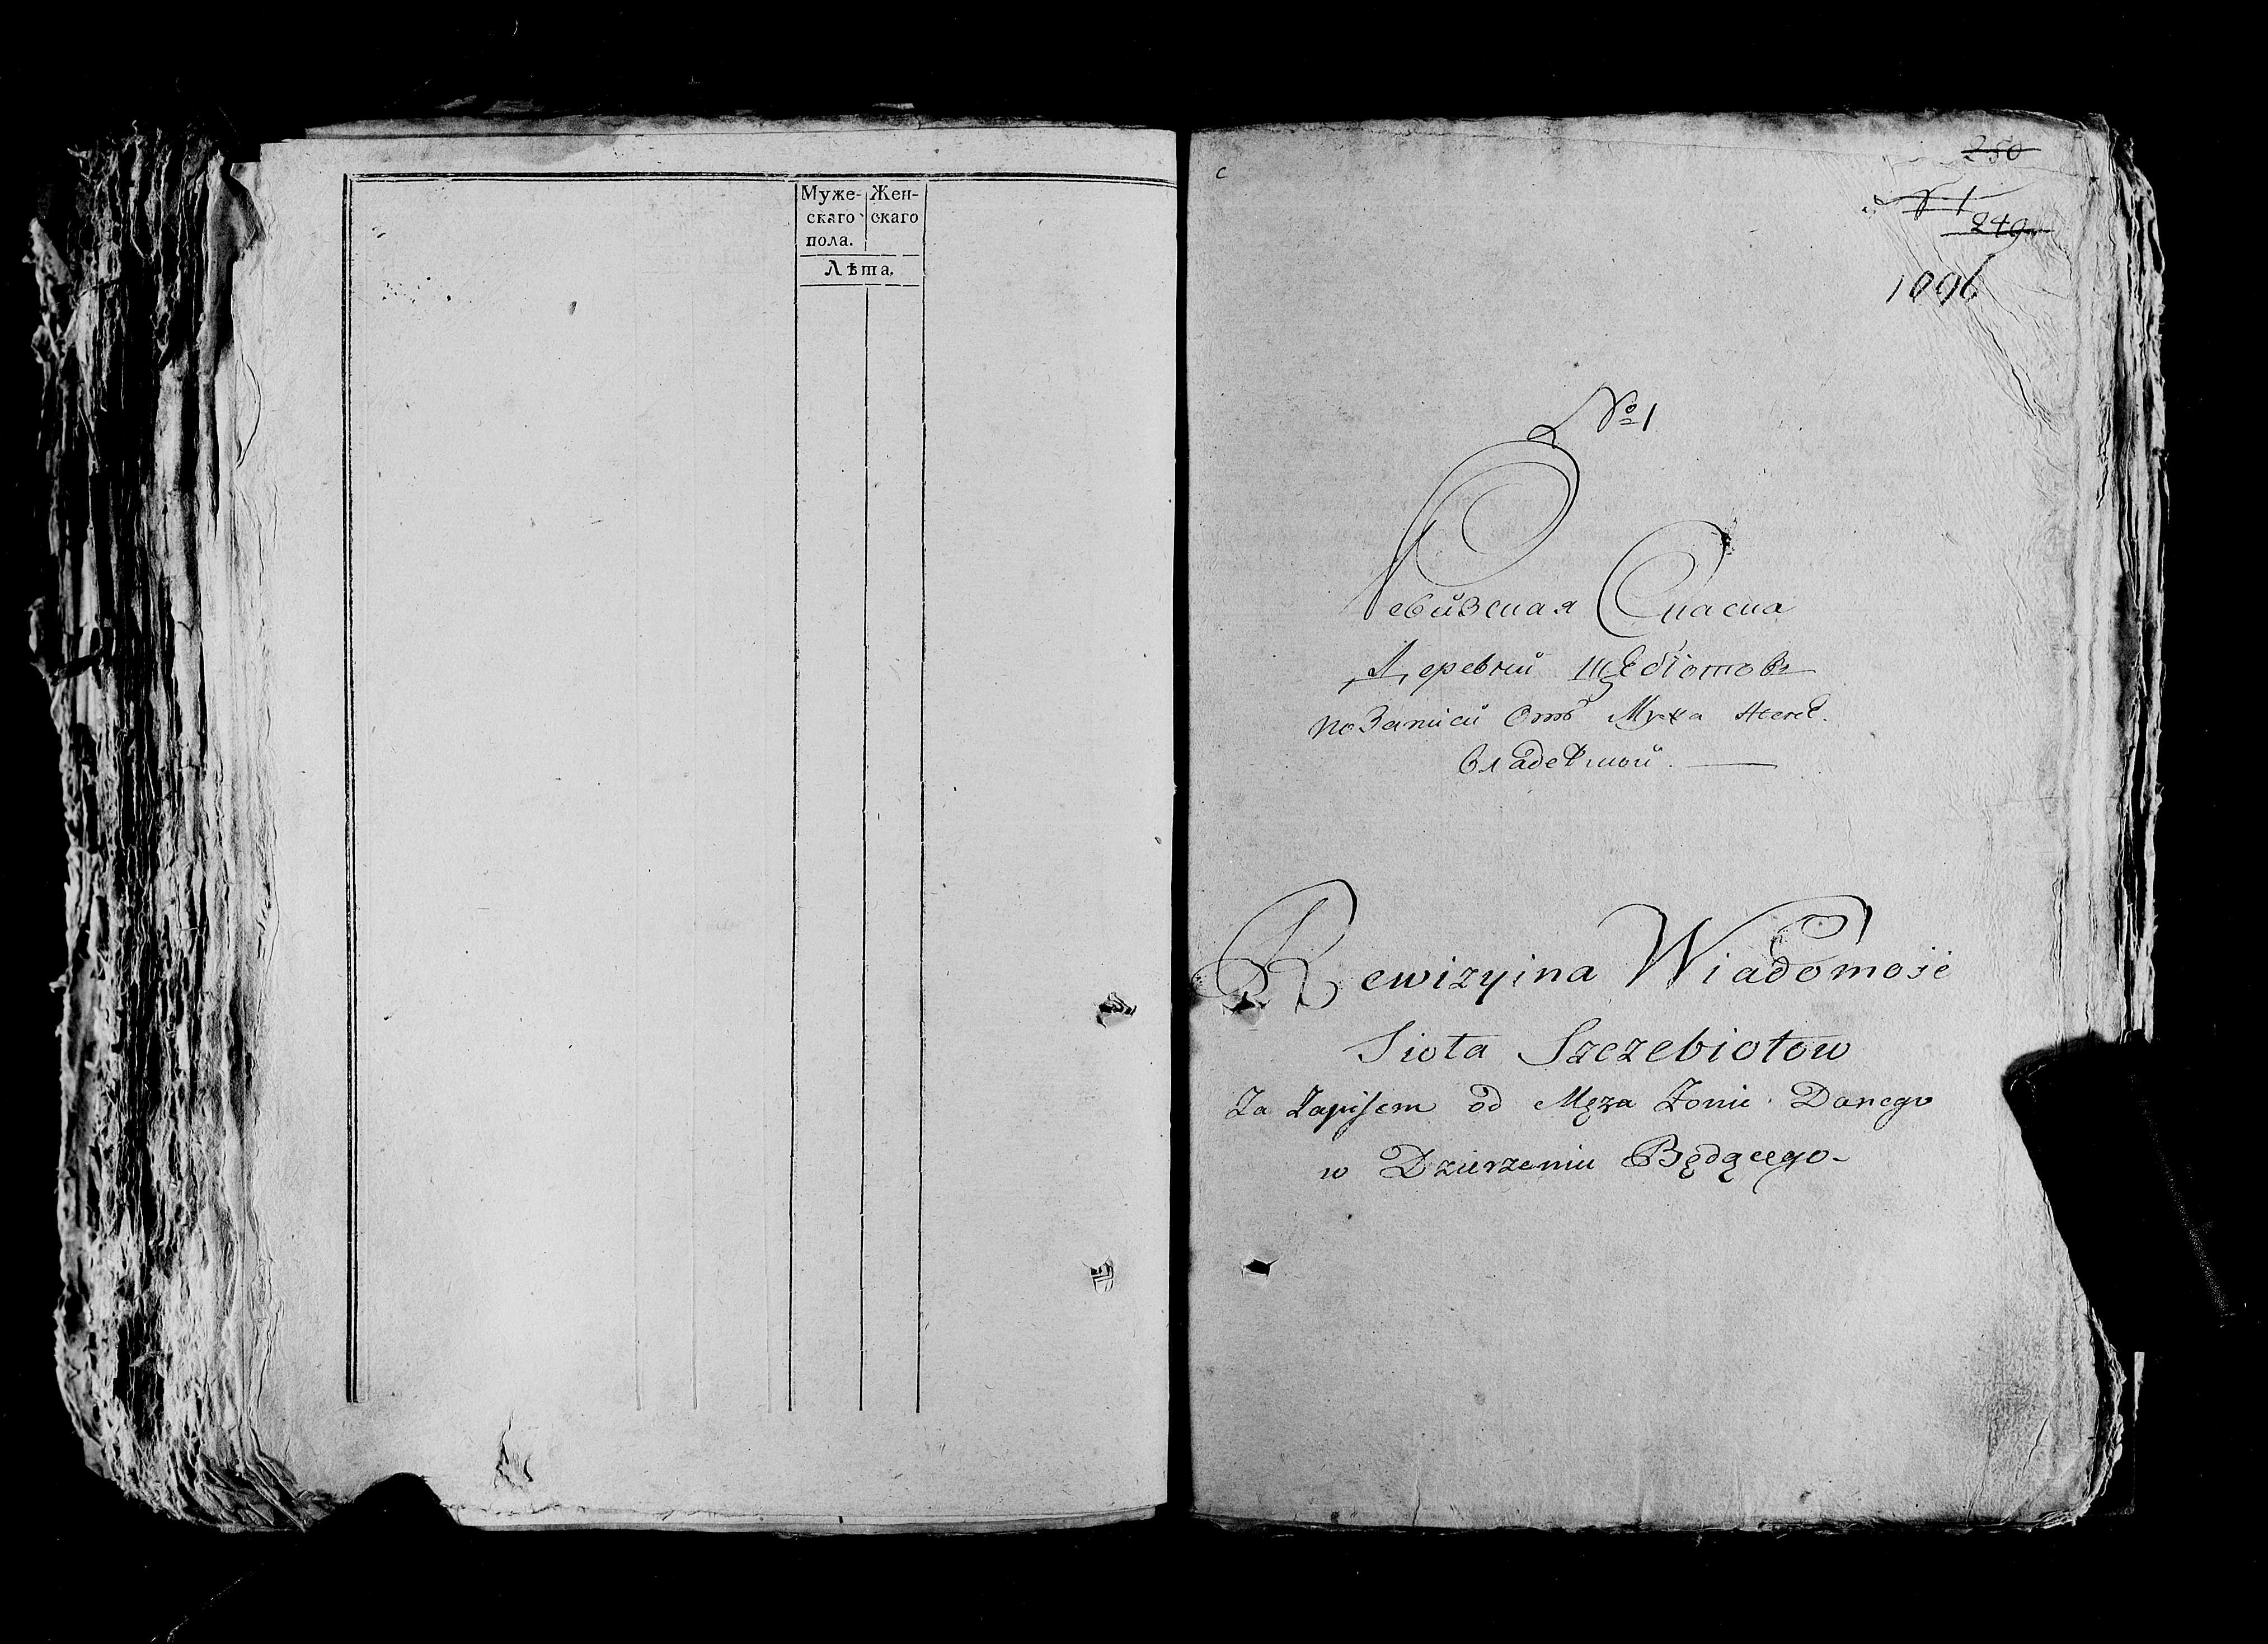 Муже-
скаго
пола.
Жен-
скаго
Лѣта.
250
№ 1
249
1096
№ 1
Ревизская Спаска
Деревни Щебіотовъ
по Записи Отъ Мужа Жене
владеемой.
Rewizyina Wiadomość
Sioła Szczebiotow
Za Zapisem od Męża Żonie Danego
w Dzierżeniu Będącego